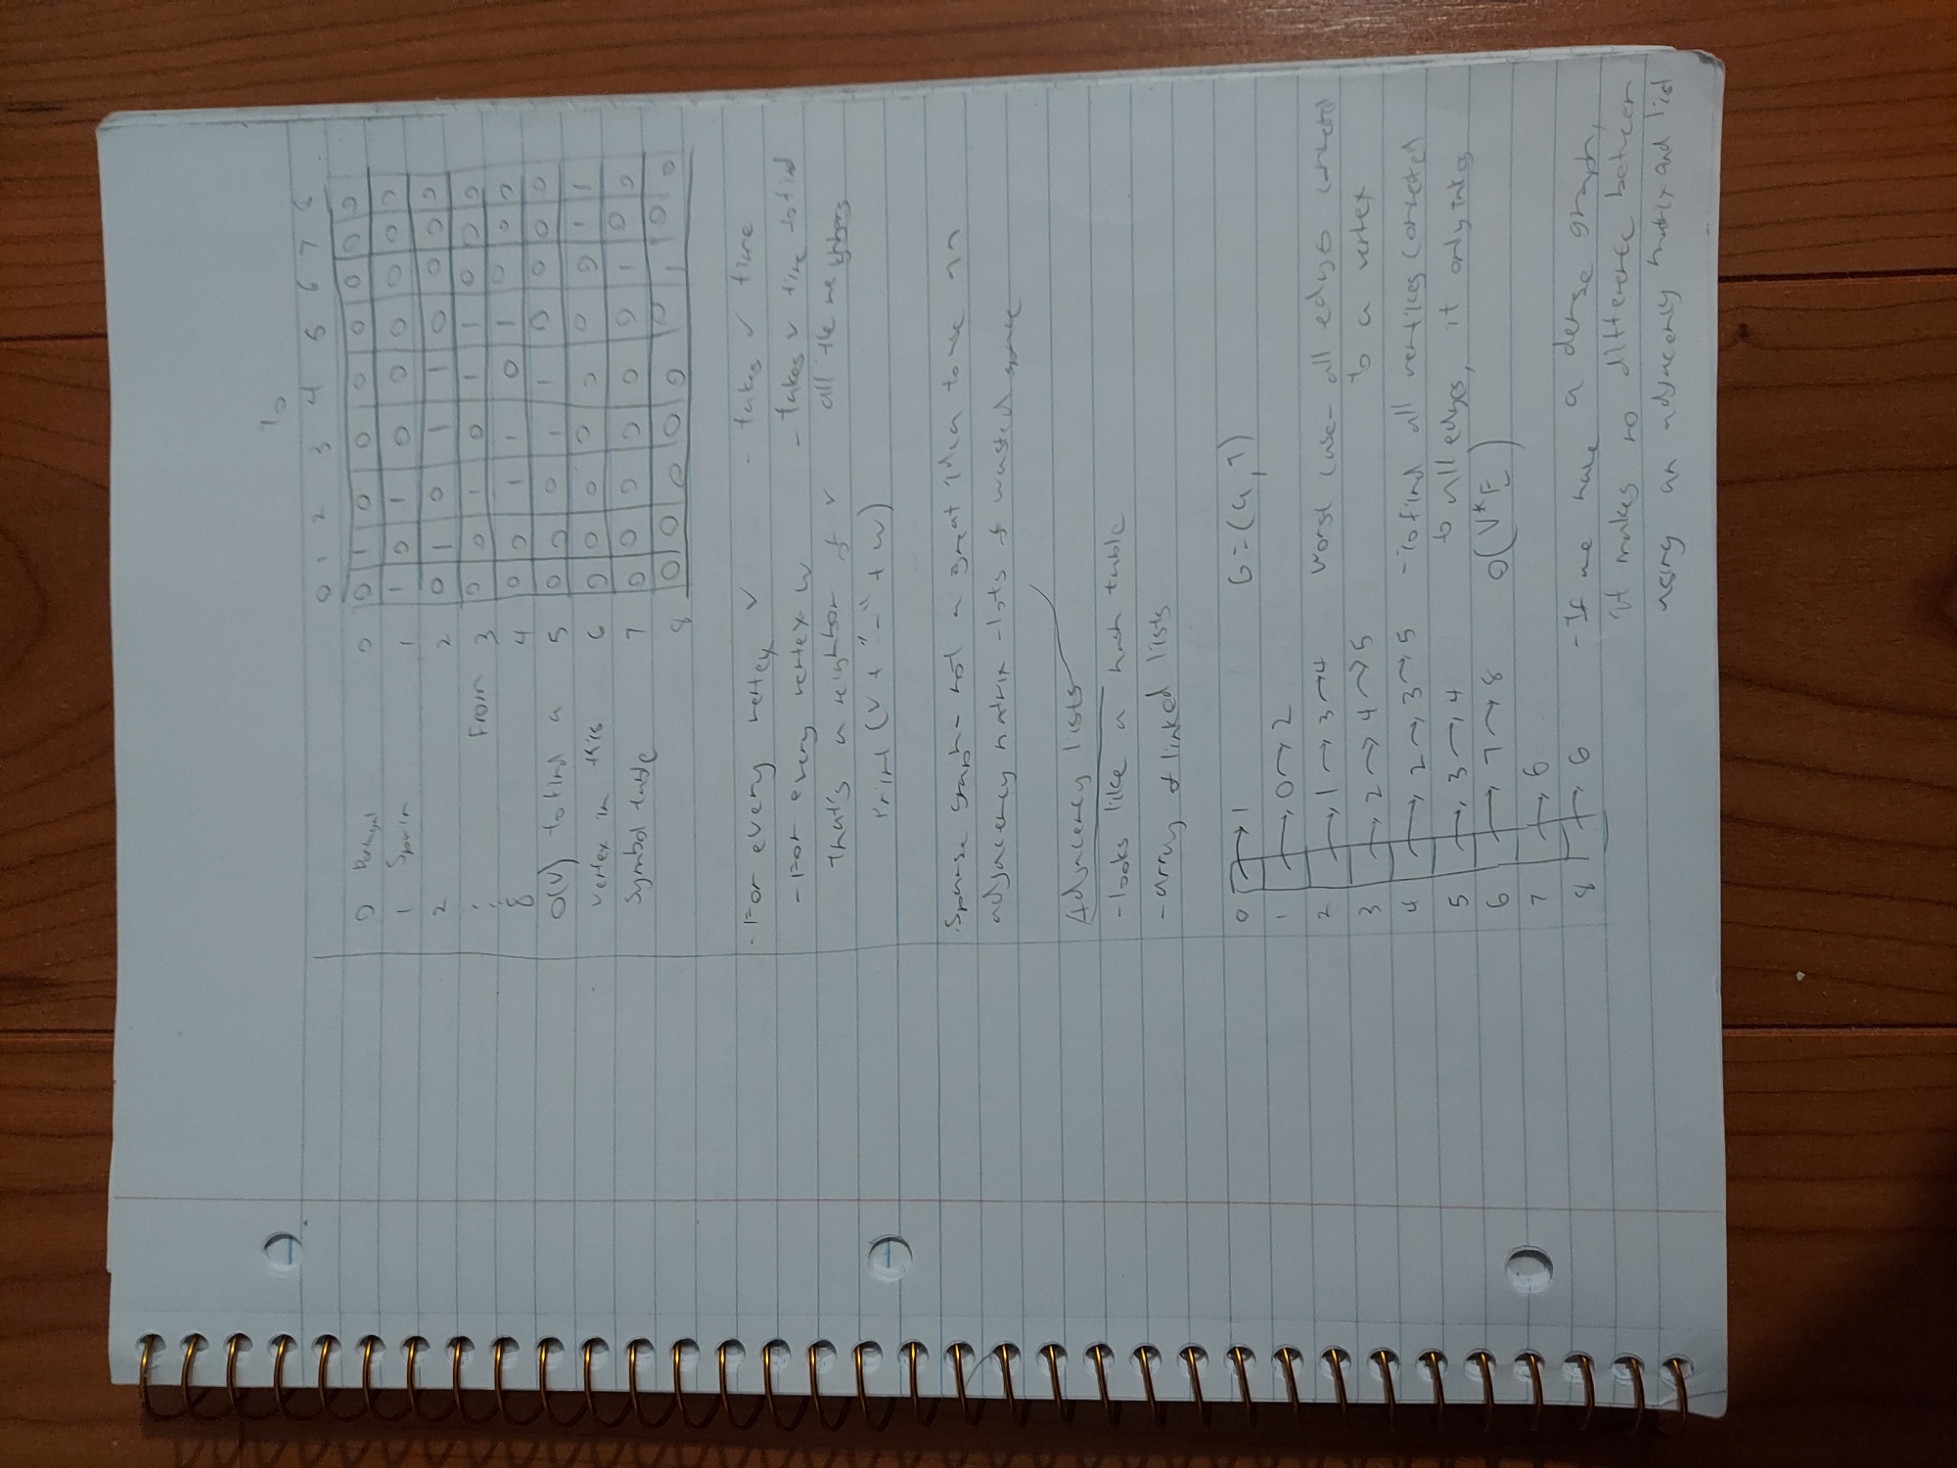 To
0 1 2 3 4 5 6 7 8
0 Portugal 0 0 1 0 0 0 0 0 0 0
1 Spain 1 1 0 1 0 0 0 0 0 0
2 2 0 1 0 1 1 0 0 0 0
: From 3 0 0 1 0 1 1 0 0 0
8 4 0 0 1 1 0 1 0 0 0
O(V) to find a 5 0 0 0 1 1 0 0 0 0
vertex in this 6 0 0 0 0 0 0 0 1 1
symbol table 7 0 0 0 0 0 0 1 0 0
8 0 0 0 0 0 0 1 0 0
-For every vertex v - takes v time
-For every vertex w - takes v time to find
that's a neighbor of v all the neighbors
Print(v + "-" + w)
Sparse graph - not a great idea to use an
adjacency matrix - lots of wasted space
Adjacency lists
- looks like a hash table
- array of linked lists
0 → 1 6=(4,7)
1 → 0 → 2
2 → 1 → 3 → 4 worst case - all edges connected
3 → 2 → 4 → 5 to a vertex
4 → 2 → 3 → 5 - to find all vertices connected
5 → 3 → 4 to all edges, it only takes
6 → 7 → 8 O(V*E)
7 → 6
8 → 6 - If we have a dense graph,
it makes no difference between
using an adjacency matrix and list